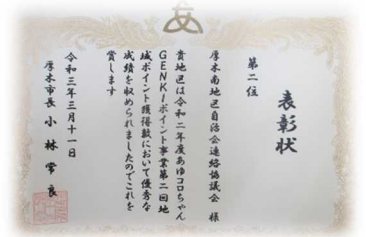 表彰状
第二位
厚木南地区自治会連絡協議会 様
貴地区は令和二年度あゆコロちゃん
GENKIポイント事業第二回地
域ポイント獲得数において優秀な
成績を収められましたのでこれを
賞します
令和三年三月十一日
厚木市長 小林常良